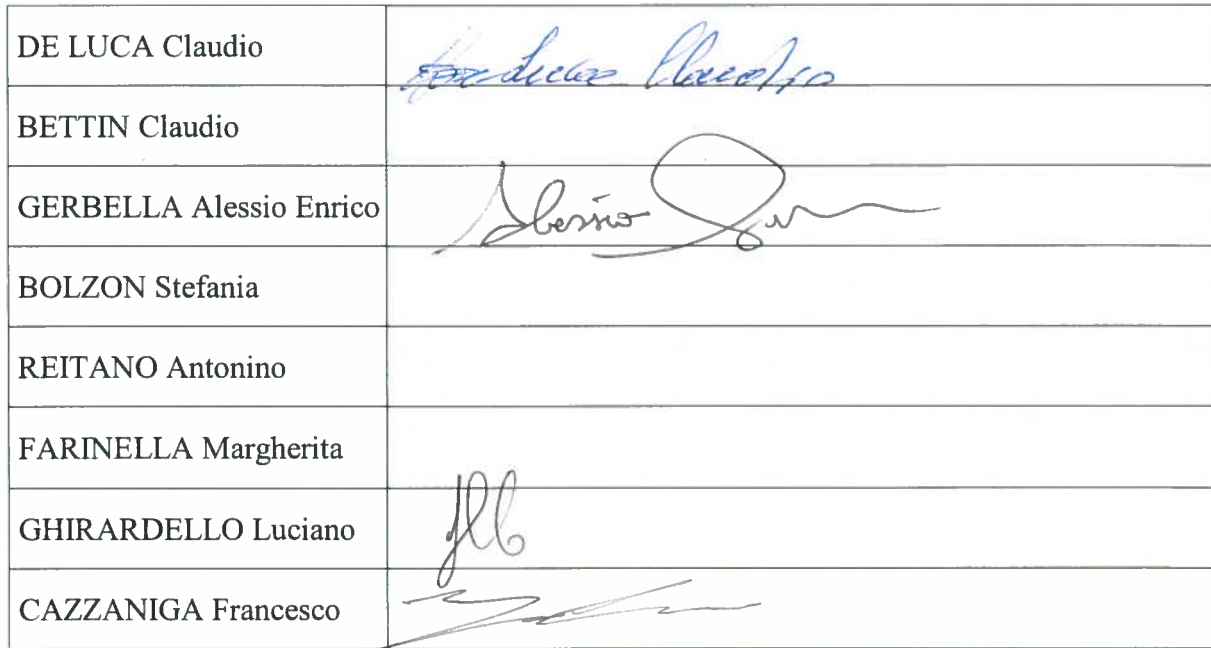 DE LUCA Claudio
De Luca Claudio
BETTIN Claudio
GERBELLA Alessio Enrico
Alessio
BOLZON Stefania
REITANO Antonino
FARINELLA Margherita
GHIRARDELLO Luciano
CAZZANIGA Francesco